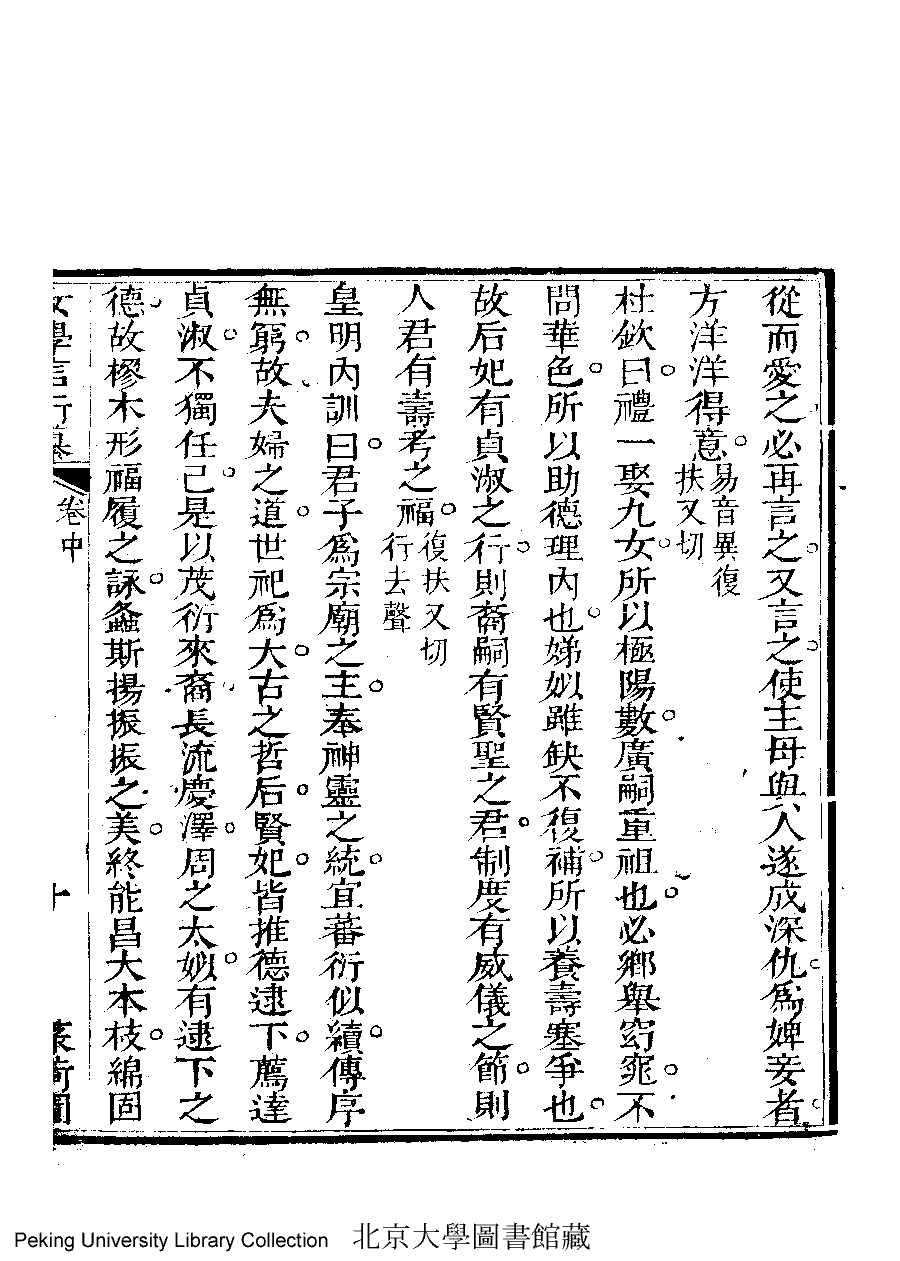 從而愛之必再言之。又言之。使主母與人遂成深仇。爲婢妾者。
方洋洋得意。易音異復扶又切
杜欽曰。禮一娶九女。所以極陽數。廣嗣重祖也。必鄉舉窈窕。不
問華色。所以助德理內也。娣姒雖缺不復補。所以養壽塞爭也。
故后妃有貞淑之行。則裔嗣有賢聖之君。制度有威儀之節。則
人君有壽考之福。復扶又切行去聲
皇明內訓曰。君子爲宗廟之主。奉神靈之統。宜蕃衍似續。傳序
無窮。故夫婦之道。世祀爲大。古之哲后。賢妃。皆推德逮下。薦達
貞淑。不獨任己。是以茂衍來裔。長流慶澤。周之太姒。有逮下之
德。故樛木形福履之詠。螽斯揚振振之美。終能昌大本枝。綿固
女學言行纂
卷中
十
Peking University Library Collection 北京大學圖書館藏